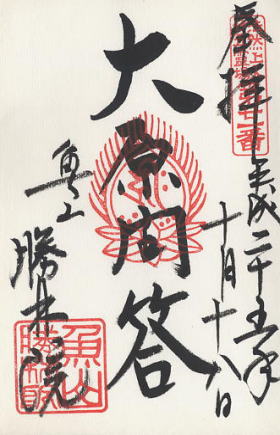 奉拝
平成二十五年
十月十八日
大原問答
魚山
勝林院